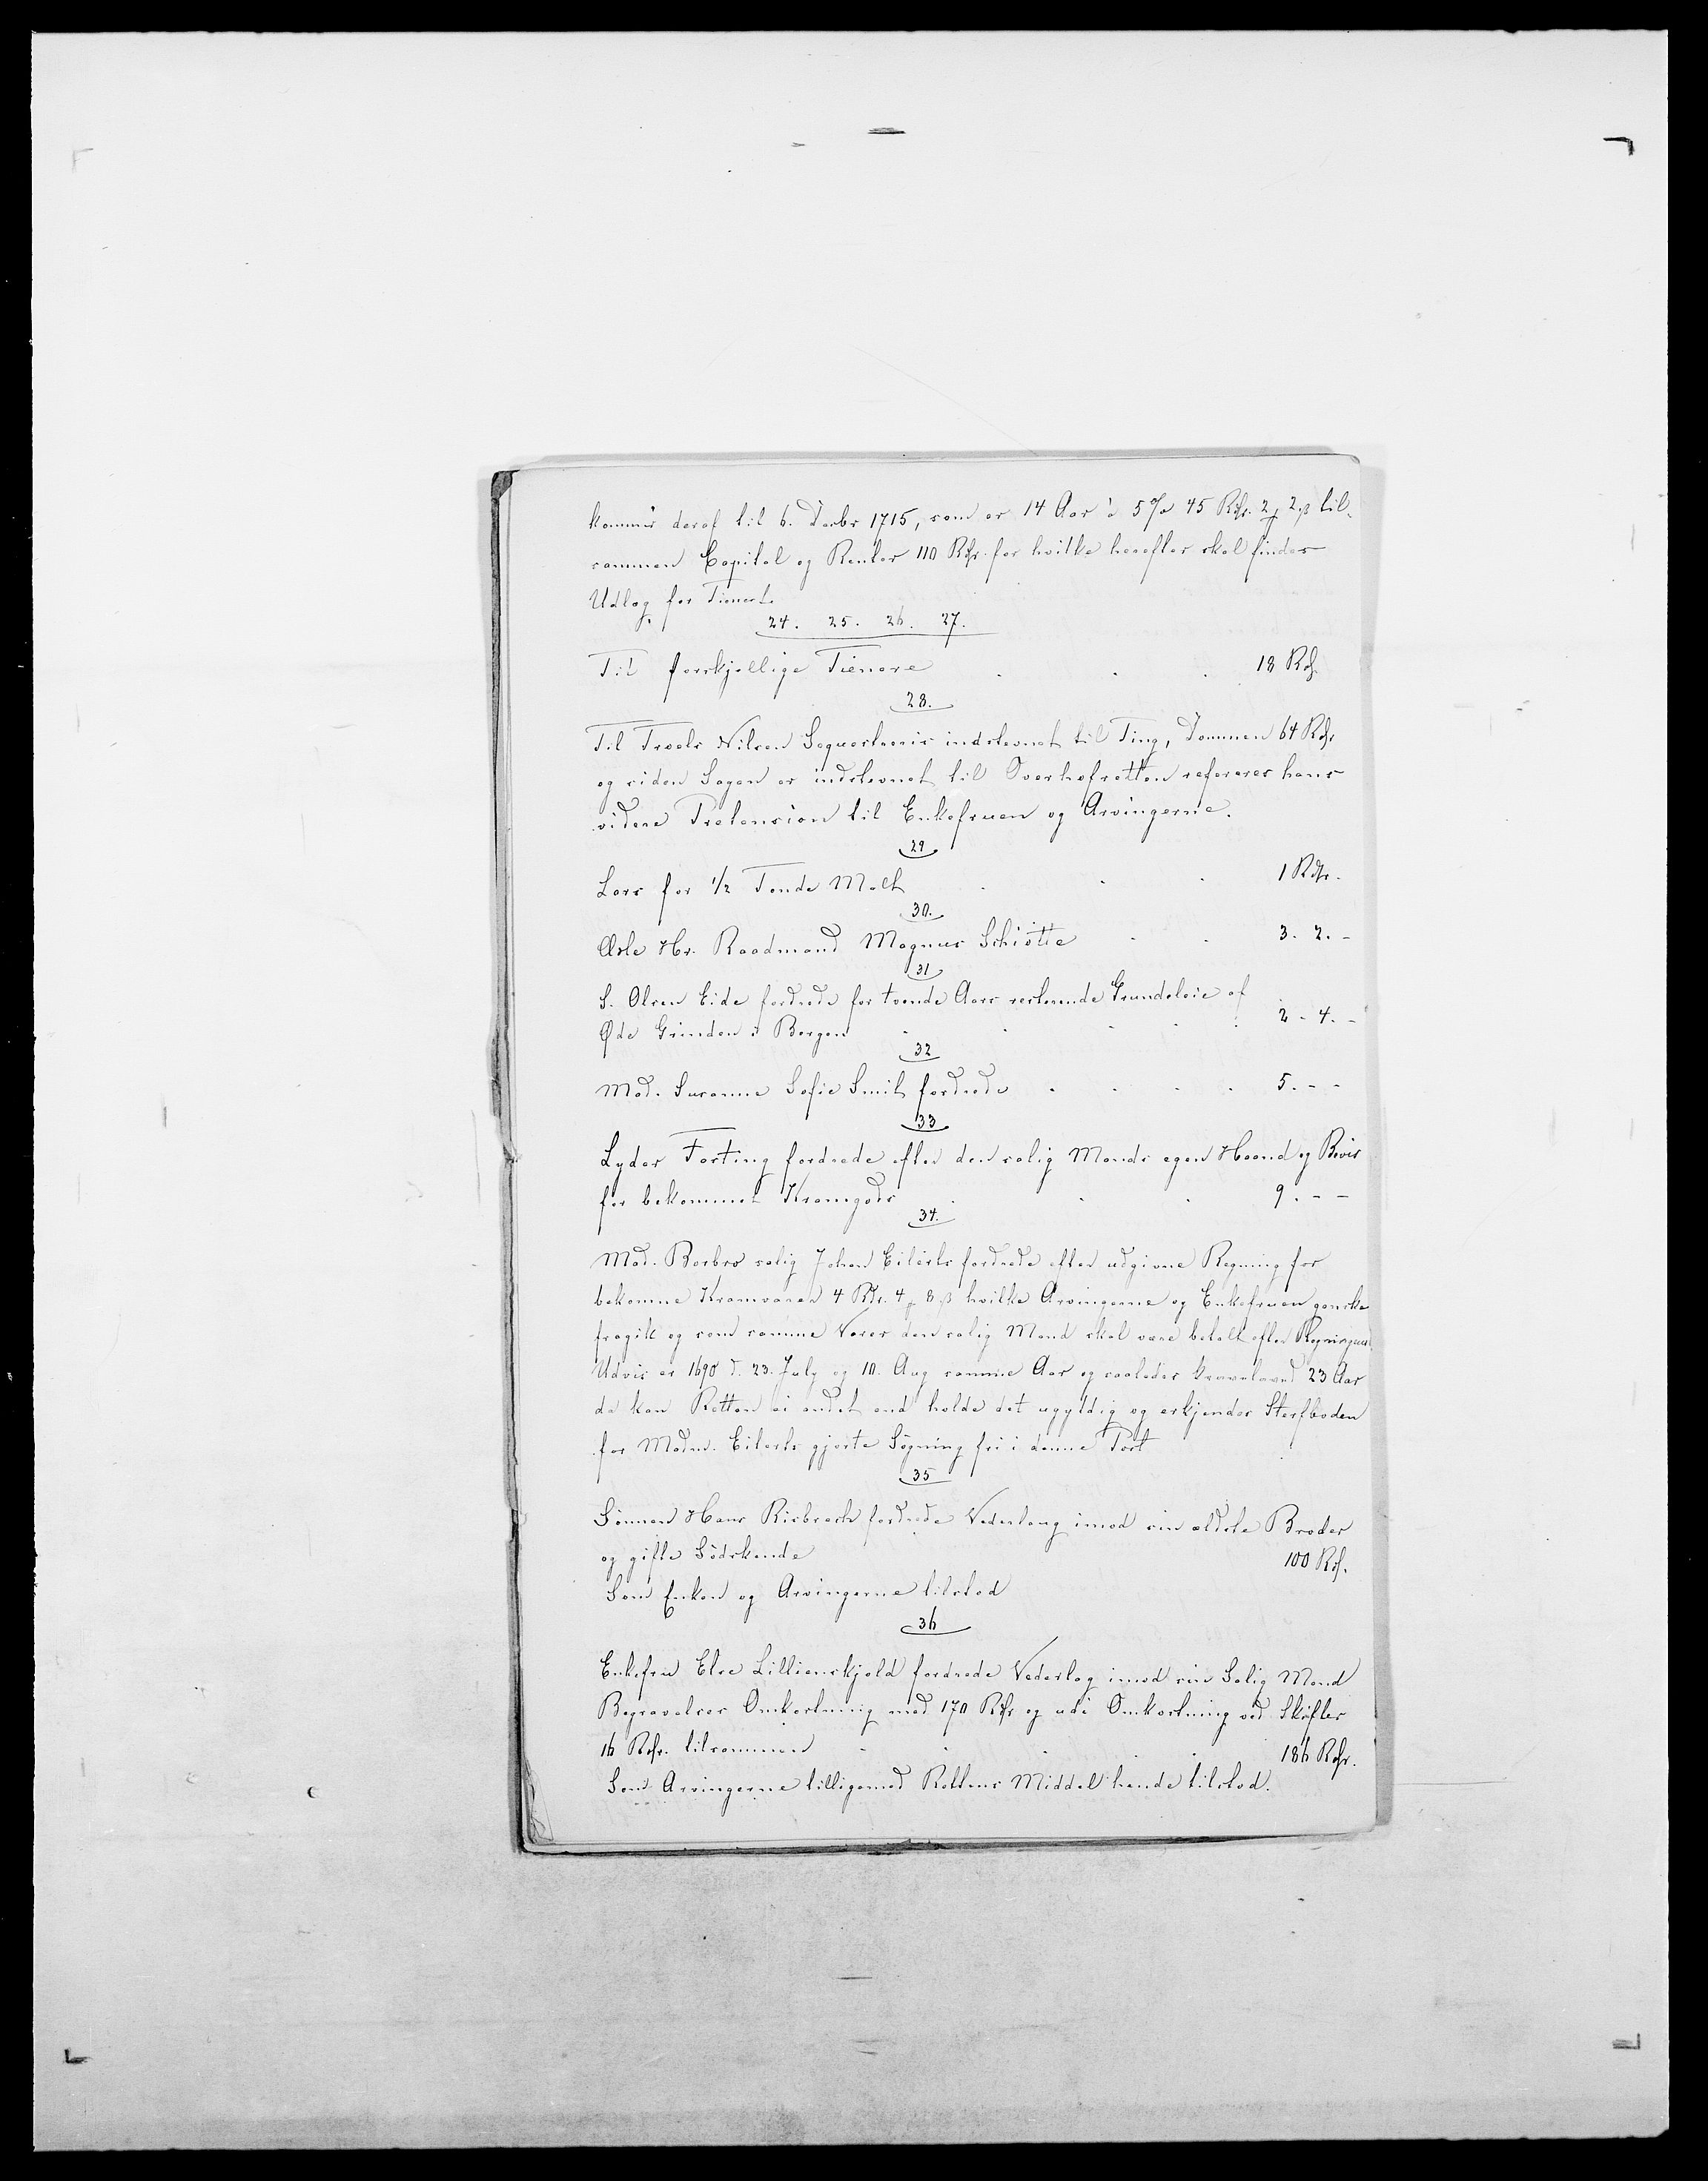 kommer deraf til 6. Decbr 1715, som er 14 Aar à 5 % 45 Rdr. 2 ʒ 2 β til-
sammen Capital og Renter 110 Rdr. for hvilke herefter skal findes
Udlæg for Tieneste
24. 25. 26. 27.
Til forskjellige Tienere . . . 18 Rdr.
28.
Til Troels Nilsen Seqvesteris indstevnet til Ting, Dommen 64 Rdr
og siden Sagen er indstevnet til Overhofretten refereres hans
videre Pretension til Enkefruen og Arvingerne.
29
Lars for 1/2 Tønde Malt . . . 1 Rdr.
30.
Asle Hr. Raadmand Magnus Schiøtte . . 3. 2. -
31
S. Olsen Eide fordrede for tvende Aars resterende Grundeleie af
Øde Grunden i Bergen . . . . . 2 - 4. -
32
Mad. Susanne Sofie Smit fordrede . . . . 5. - -
33
Lyder Fasting fordrede efter den salig Mands egen Haand og Bevis
for bekommet Kramgods . . . 9. - -
34.
Mad. Barbro salig Johan Eilerts fordrede efter udgivne Regning for
bekomne Kramvarer 4 Rdr. 4 ʒ 8 β hvilke Arvingerne og Enkefruen ganske
fragik og som samme Varer den salig Mand skal være betalt efter
Udvis er 1690 d. 23. July og 10. Aug samme Aar og saaledes 23 Aar
da kan Retten ei andet end holde det ugyldig og erkjender Sterfboden
for Madm. Eilerts gjorte Søgning fri i denne Post
35
Sønnen Hans Risbrech fordrede Vederlaug imod sin ældste Broder
og gifte Sødskende 100 Rdr.
Som Enken og Arvingerne tilstod
36
Enkefru Else Lillienskjold fordrede Vederlag imod sin Salig Mand
Begravelses Omkostning med 170 Rdr og udi Omkostning ved Skiftet
16 Rdr. tilsammen . . . 186 Rdr.
Som Arvingerne tilligemed Rettens Middel hende tilstod.